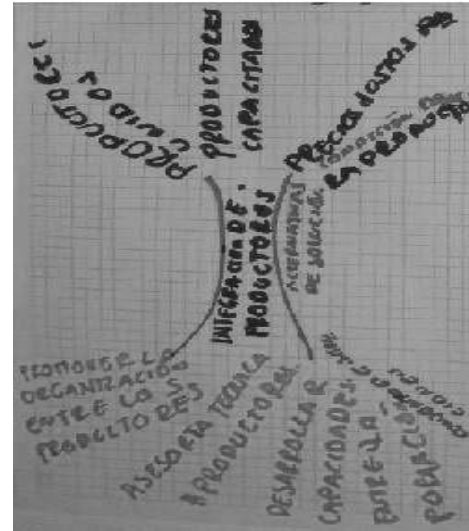 PRODUCTORES
UNIDOS
PRODUCTORES
CAPACITADOS
PRECIOS JUSTOS
LA PRODUC
INTEGRACION DE
PRODUCTORES
ALTERNATIVAS
DE SOLUCION
PROMOVER LA
ORGANIZACIÓN
ENTRE LOS
PRODUCTORES
ASESORIA TECNICA
A PRODUCTORES
DESARROLLAR
CAPACIDADES
ENTRE LA
POBLACION